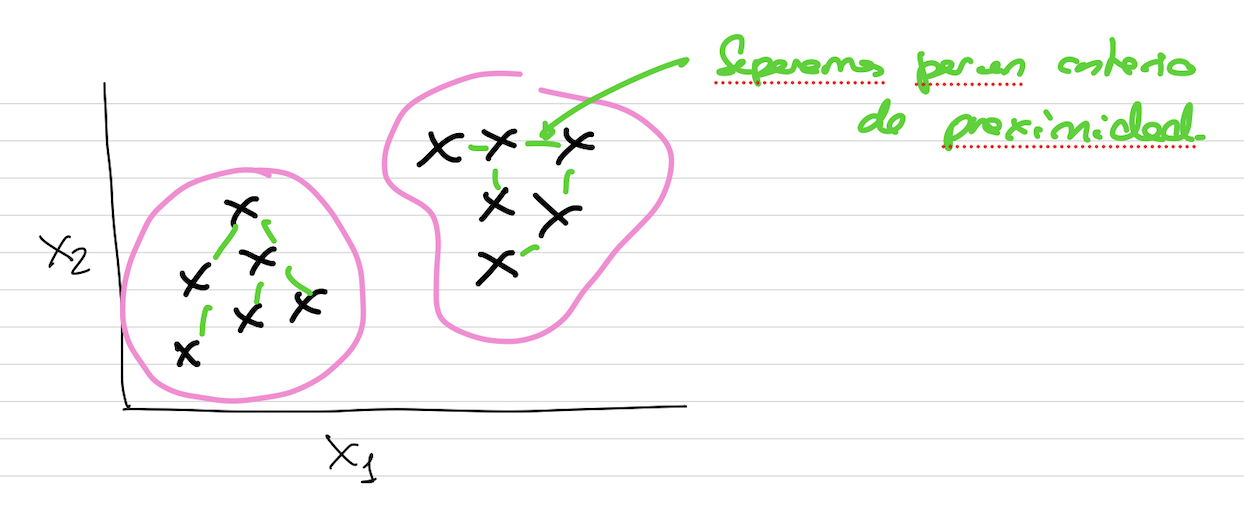 Separamos por un criterio
de proximidad.
X2
X1